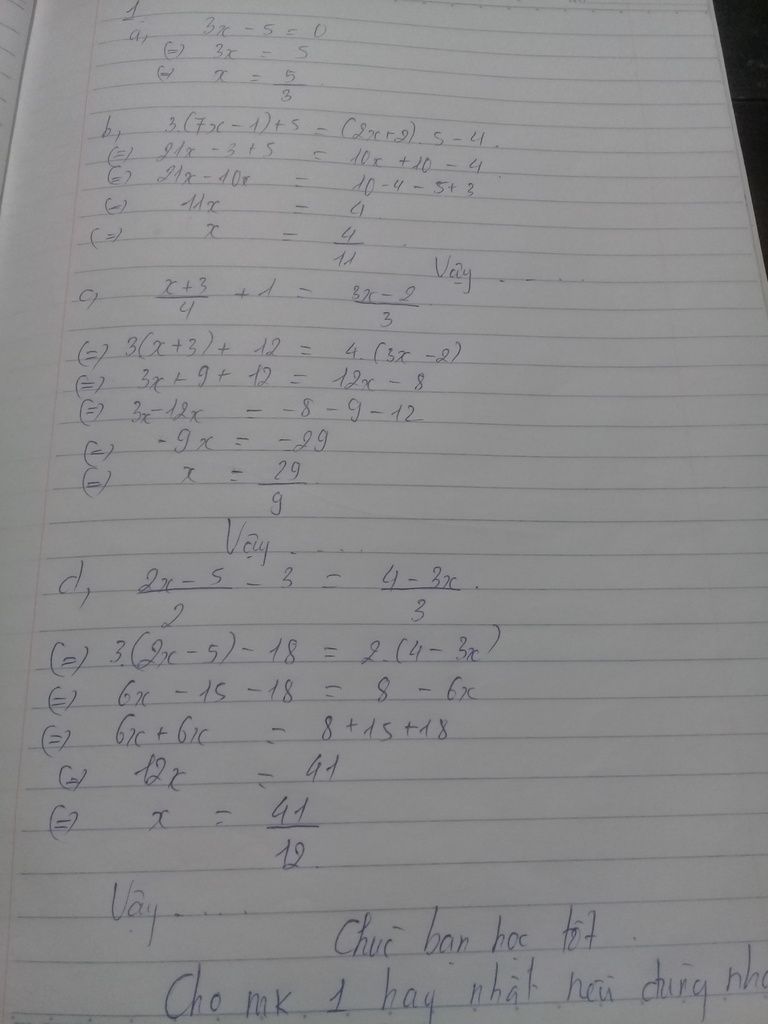 1
a, 3x - 5 = 0
(=) 3x = 5
(=) x = 5/3
b, 3.(7x - 1) + 5 = (2x+2).5 - 4.
(=) 21x - 3 + 5 = 10x + 10 - 4
(=) 21x - 10x = 10 - 4 - 5 + 3
(=) 11x = 4
(=) x = 4/11
Vậy .....
c, (x+3)/4 + 1 = (3x - 2)/3
(=) 3(x+3) + 12 = 4.(3x - 2)
(=) 3x + 9 + 12 = 12x - 8
(=) 3x - 12x = -8 - 9 - 12
(=) -9x = -29
(=) x = 29/9
Vậy .....
d, (2x - 5)/2 - 3 = (4 - 3x)/3.
(=) 3.(2x - 5) - 18 = 2.(4 - 3x)
(=) 6x - 15 - 18 = 8 - 6x
(=) 6x + 6x = 8 + 15 + 18
(=) 12x = 41
(=) x = 41/12
Vậy .....
Chúc bạn học tốt.
Cho mk 1 hay nhất nếu đúng nha